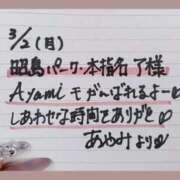 3/2(月)
昭島パーク・本指名 了様
Ayami モがんばれるよー♡
しあわせな時間でありがと♡
あやみより♡